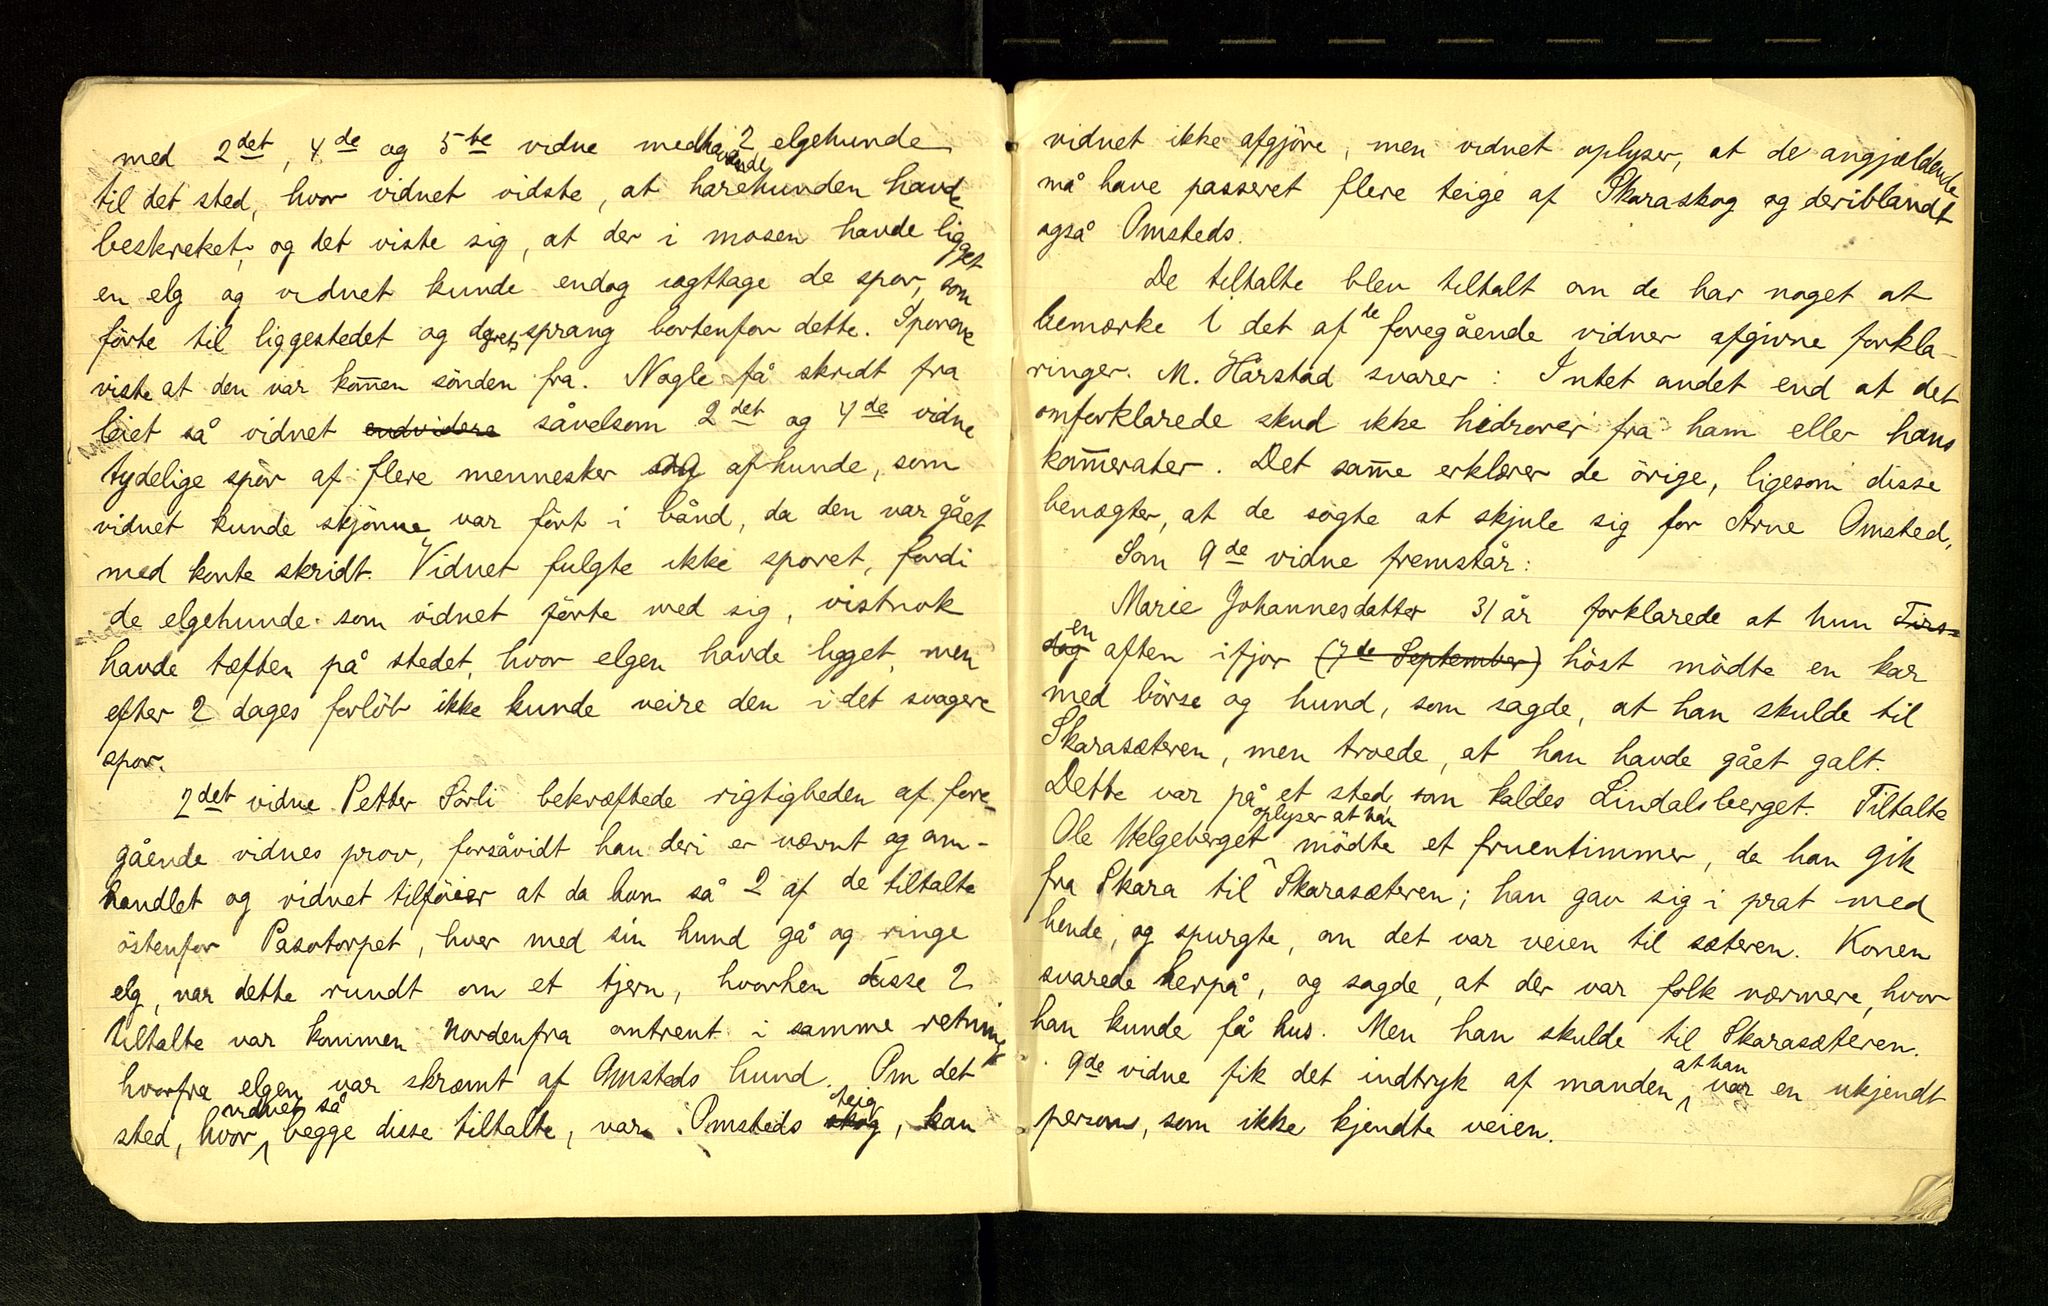 med 2det, 4de og 5te vidne medhavende 2 elgehunde
til det sted, hvor vidnet vidste, at harehunden havde
beskreket, og det viste sig, at der i mosen havde ligget
en elg og vidnet kunde endog iagttage de spor, som
förte til liggestedet og dyrets sprang bortenfor dette. Sporene
viste at den var kommen sönden fra. Nogle få skridt fra
leiet så vidnet endvidere såvelsom 2det og 4de vidne
tydelige spor af flere mennesker og af hunde, som
vidnet kunde skjönne var fört i bånd, da den var gået
med korte skridt. Vidnet fulgte ikke sporet, fordi
de elgehunde som vidnet förte med sig, vistnok
havde tæften på stedet, hvor elgen havde ligget, men
efter 2 dages forlöb ikke kunde veire den i det svagere
spor.
2det vidne Petter Sörli bekræftede rigtigheden af fore-
gående vidnes prov, forsåvidt han deri er nævnt og om-
handlet og vidnet tilföier at da han så 2 af de tiltalte
östenfor Pasotorpet, hver med sin hund gå og ringe
elg, var dette rundt om et tjern, hvorhen disse 2
tiltalte var kommen nordenfra omtrent i samme retning
hvorfra elgen var skræmt af Omsteds hund. Om det
sted, hvor vidnet så begge disse tiltalte, var Omsteds skog teig, kan
vidnet ikke afgjöre, men vidnet oplyser, at de angjældende
må have passeret flere teige af Skaraskog og deriblandt
også Omsteds.
De tiltalte blev tiltalt om de har noget at
bemærke i det af de foregående vidner afgivne forkla-
ringer. M. Hårstad svarer: Intet andet end at det
omforklarede skud ikke hidrörer fra ham eller hans
kam̄erater. Det sam̄e erklærer de örige, ligesom disse
benægter, at de sögte at skjule sig for Arne Omsted.
Som 9de vidne fremstår:
Marie Johannesdatter 31 år forklarede at hun Tirs-
dag en aften ifjor (7de September) höst mödte en kar
med börse og hund, som sagde, at han skulde til
Skarasæteren, men troede, at han havde gået galt.
Dette var på et sted, som kaldes Lindalsberget. Tiltalte
Ole Helgeberget oplyser at han mödte et fruentimmer, da han gik
fra Skara til Skarasæteren; han gav sig i prat med
hende, og spurgte, om det var veien til sæteren. Konen
svarede herpå, og sagde, at der var folk nærmere, hvor
han kunde få hus. Men han skulde til Skarasæteren.
9de vidne fik det indtryk af manden at han var en ukjendt
person, som ikke kjendte veien.